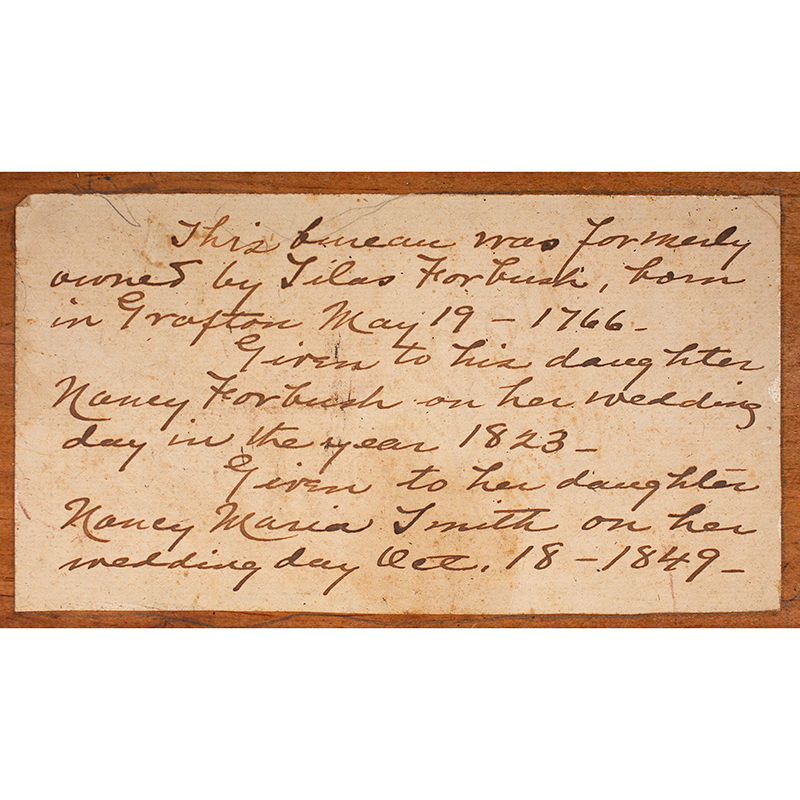 This bureau was formerly
owned by Silas Forbush, born
in Grafton May 19 - 1766 -
Given to his daughter
Nancy Forbush on her wedding
day in the year 1823 -
Given to her daughter
Nancy Maria Smith on her
wedding day Oct. 18 - 1849 -